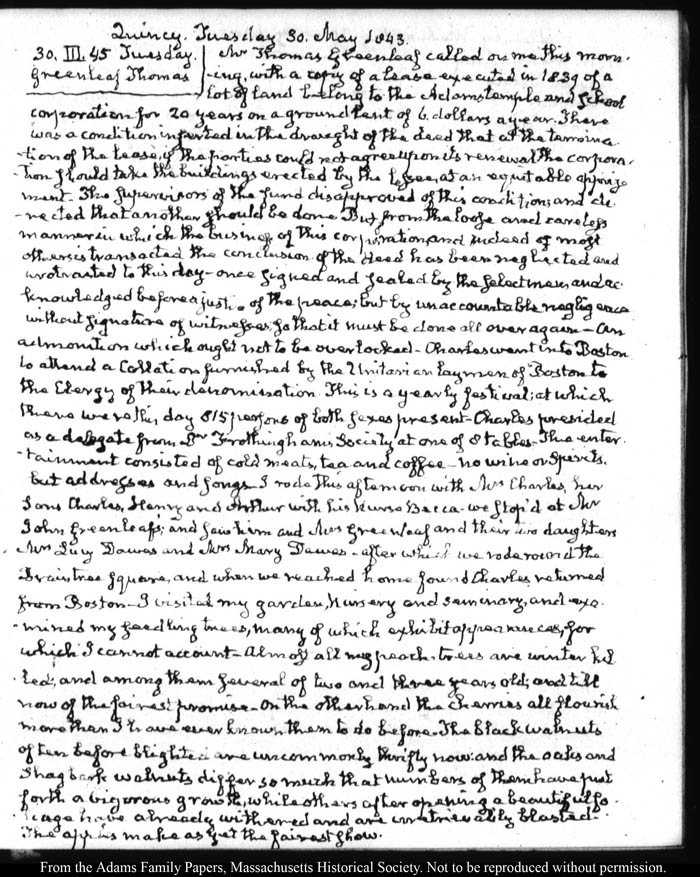 Quincy. Tuesday 30. May 1843.
30. III. 45 Tuesday. Mr Thomas Greenleaf called on me this morn-
Greenleaf Thomas -ing, with a copy of a lease executed in 1839 of a
lot of land belong to the Adams temple and School
corporation for 20 years on a ground rent of 6. dollars a year. There
was a condition inserted in the draught of the deed that at the termina-
-tion of the lease, if the parties could not agree upon its renewal the corpora-
-tion should take the buildings erected by the Lessee, at an equitable appraize-
ment. The Supervisors of the fund disapproved of this condition; and di-
-rected that another should be done But from the loose and careless
manner in which the business of this corporation and indeed of most
others is transacted the conclusion of the deed has been neglected and
protracted to this day - once signed and sealed by the Selectmen and ac-
knowledged before a justice of the peace; but by unaccountable negligence
without signature of witnesses; so that it must be done all over again - An
admonition which ought not to be overlooked - Charles went into Boston
to attend a Collation furnished by the Unitarian Laymen of Boston to
the Clergy of their denomination. This is a yearly festival; at which
there were this day 815 persons of both sexes present - Charles presided
as a delegate from Dr Frothingham's Society at one of 8 tables - The enter-
-tainment consisted of cold meats, tea and coffee - no wine or Spirits,
but addresses and songs - I rode this afternoon with Mrs Charles, her
Sons Charles, Henry and Arthur with his nurse Becca. we stop'd at Mr
John Greenleaf's; and saw him and Mrs Greenleaf and their two daughters
Mrs Lucy Dawes and Mrs Mary Dawes - after which we rode round the
Braintree Square, and when we reached home found Charles returned
from Boston - I visited my garden, Nursery and seminary, and exa-
-mined my seedling trees, many of which exhibit appearances, for
which I cannot account - Almost all my peach-trees are winter kil-
-led; and among them several of two and three years old; and till
now of the fairest promise - On the other hand the Cherries all flourish
more than I have ever known them to do before. The black walnuts
often before blighted are uncommonly thrifty now: and the oaks and
Shagbark walnuts differ so much that numbers of them have put
forth a vigorous growth, while others after opening a beautiful fo-
-liage have already withered and are irretrievably blasted -
The apples make as yet the fairest show.
From the Adams Family Papers, Massachusetts Historical Society. Not to be reproduced without permission.